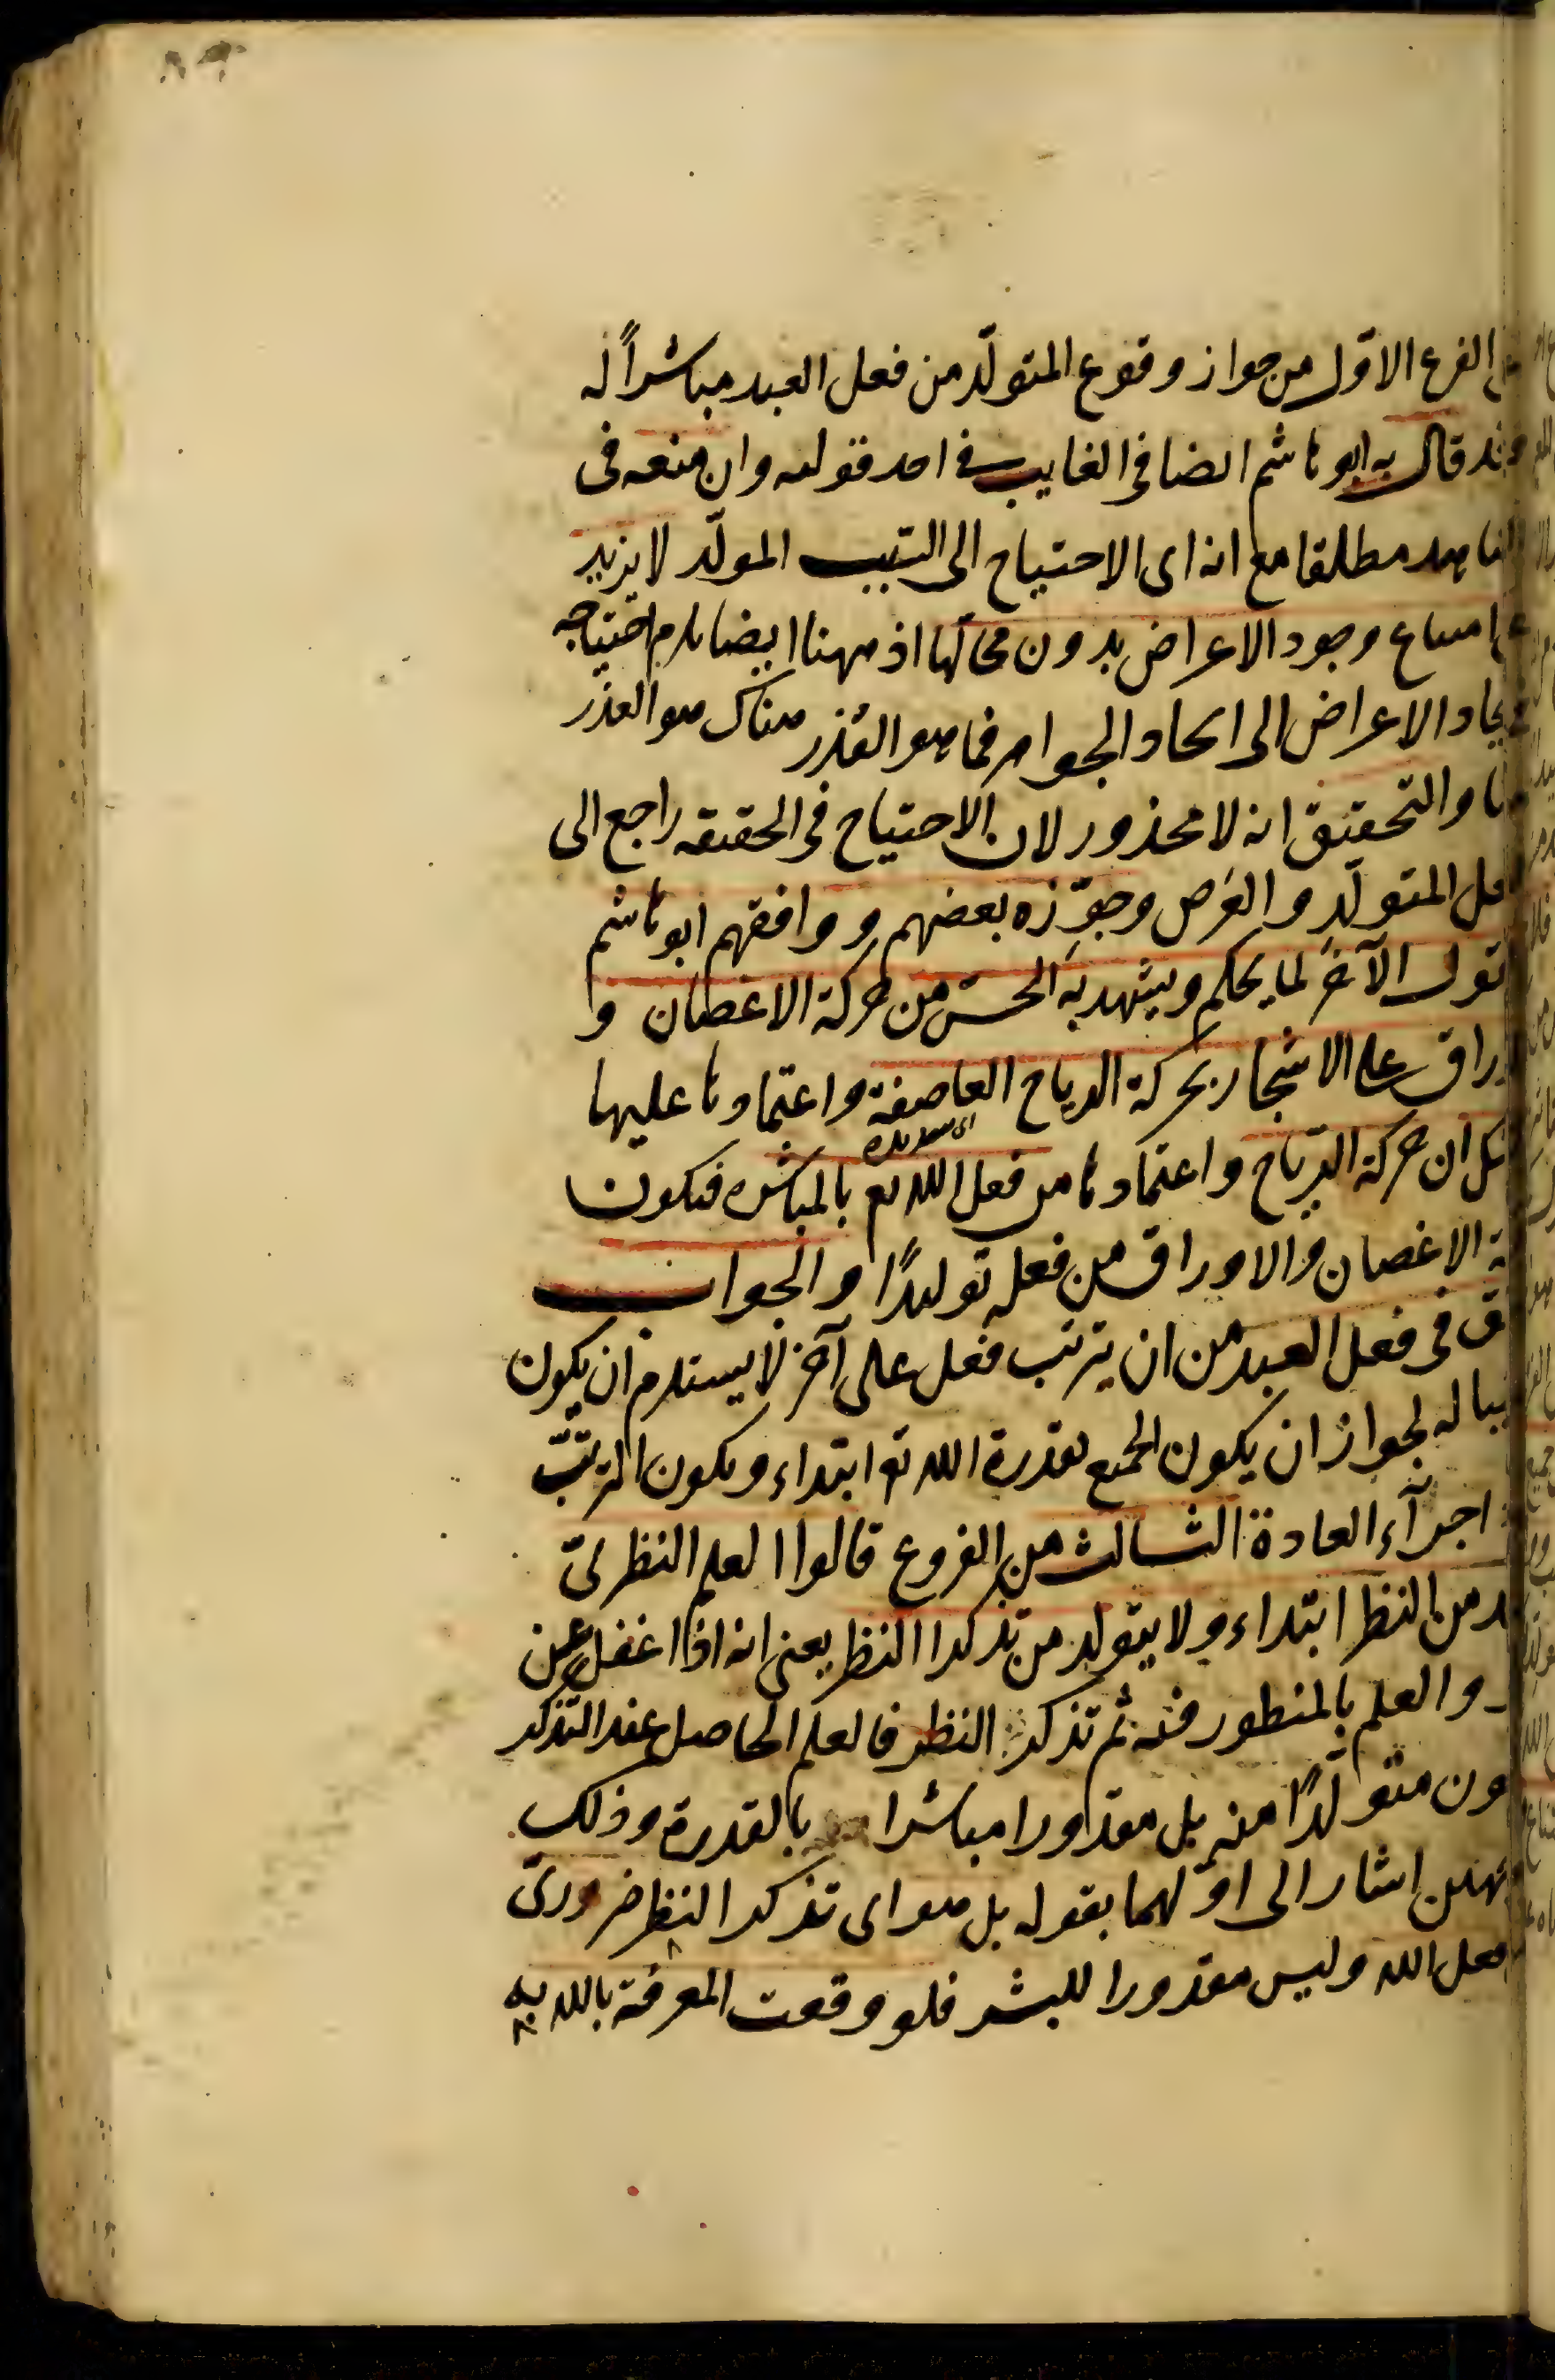 الفرع الاوّل من جواز وقوع المتولّد من فعل العبد مباشراً له
قال به ابو هاشم ايضا فى الغايب فے احد قوليه وان منعه فى
مطلقا مع انه اى الاحتياج الى السّبب المولّد لا يزيد
امتناع وجود الاعراض بدون محالّها اذ ههنا ايضا يلزم احتياجه
الاعراض الى ايجاد الجواهر فما هو العُذر هناك هو العذر
والتحقيق انه لا محذور لان الاحتياج فى الحقيقه راجع الى
المتولّد والعَرض وجوّزه بعضهم ووافقهم ابو هاشم
الآخَر لما يحكم ويشهد به الحسّ من حركة الاغصان و
على الاشجار بحركة الرياح العاصفة واعتمادها عليها
ان حركة الرياح واعتمادها من فعل الله تع بالمباشره فيكون
الاغصان والاوراق من فعله توليدًا والجواب
فى فعل العبد من ان يترتب فعل على آخر لا يستلزم ان يكون
له لجواز ان يكون الجميع بقدرة الله تع ابتداء ويكون الترتّب
اجرآء العادة الثالث من الفروع قالوا العلم النظرىّ
من النظر ابتداء ولا يتولد من تذكر النظر يعنى انه اذا اغفل عن
والعلم بالمنظور فيه ثم تذكر النظر فالعلم الحاصل عند التذكر
متولّدًا منه بل مقدورا مباشرا بالقدرة وذلك
اشار الى اوّلهما بقوله بل هو اى تذكر النظر ضرورىّ
فعل الله وليس مقدورا للبشر فلو وقعت المعرفة بالله به